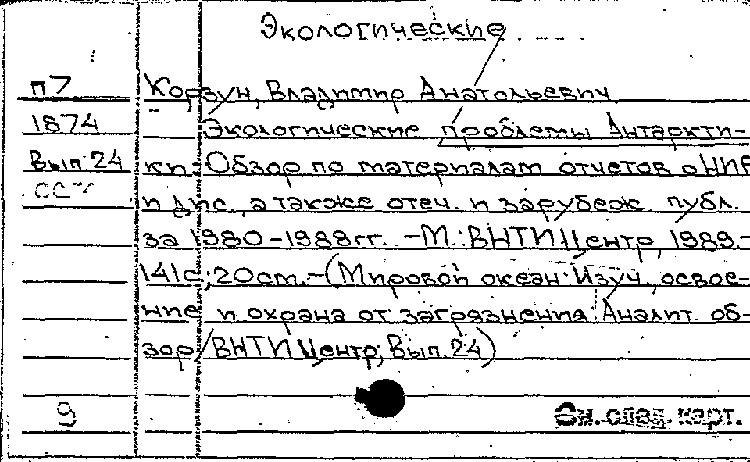 Экологические
П7 Корзун, Владимир Анатольевич
1874 Экологические проблемы Антаркти-
Вып. 24 ки: Обзор по материалам отчетов о НИР
и дис., а также отеч. и зарубеж. публ.
за 1980-1988гг. -М.: ВНТИЦентр, 1989.-
141с.; 20см.-(Мировой океан: Изуч., освое-
ние и охрана от загрязнения: Аналит. об-
зор/ВНТИЦентр; Вып. 24)
9 См. след. карт.